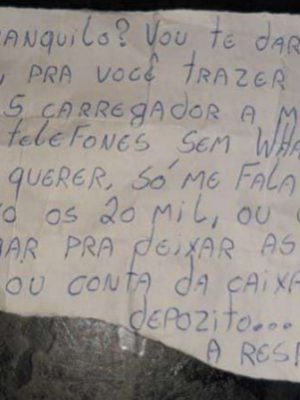 ANQUILO? VOU TE DAR
, PRA VOCÊ TRAZER
5 CARREGADOR A M
TELEFONES SEM WHA
QUERER, SÓ ME FALA
O OS 20 MIL, OU
AR PRA DEIXAR AS
OU CONTA DA CAIXA
DEPOZITO...
A RESP